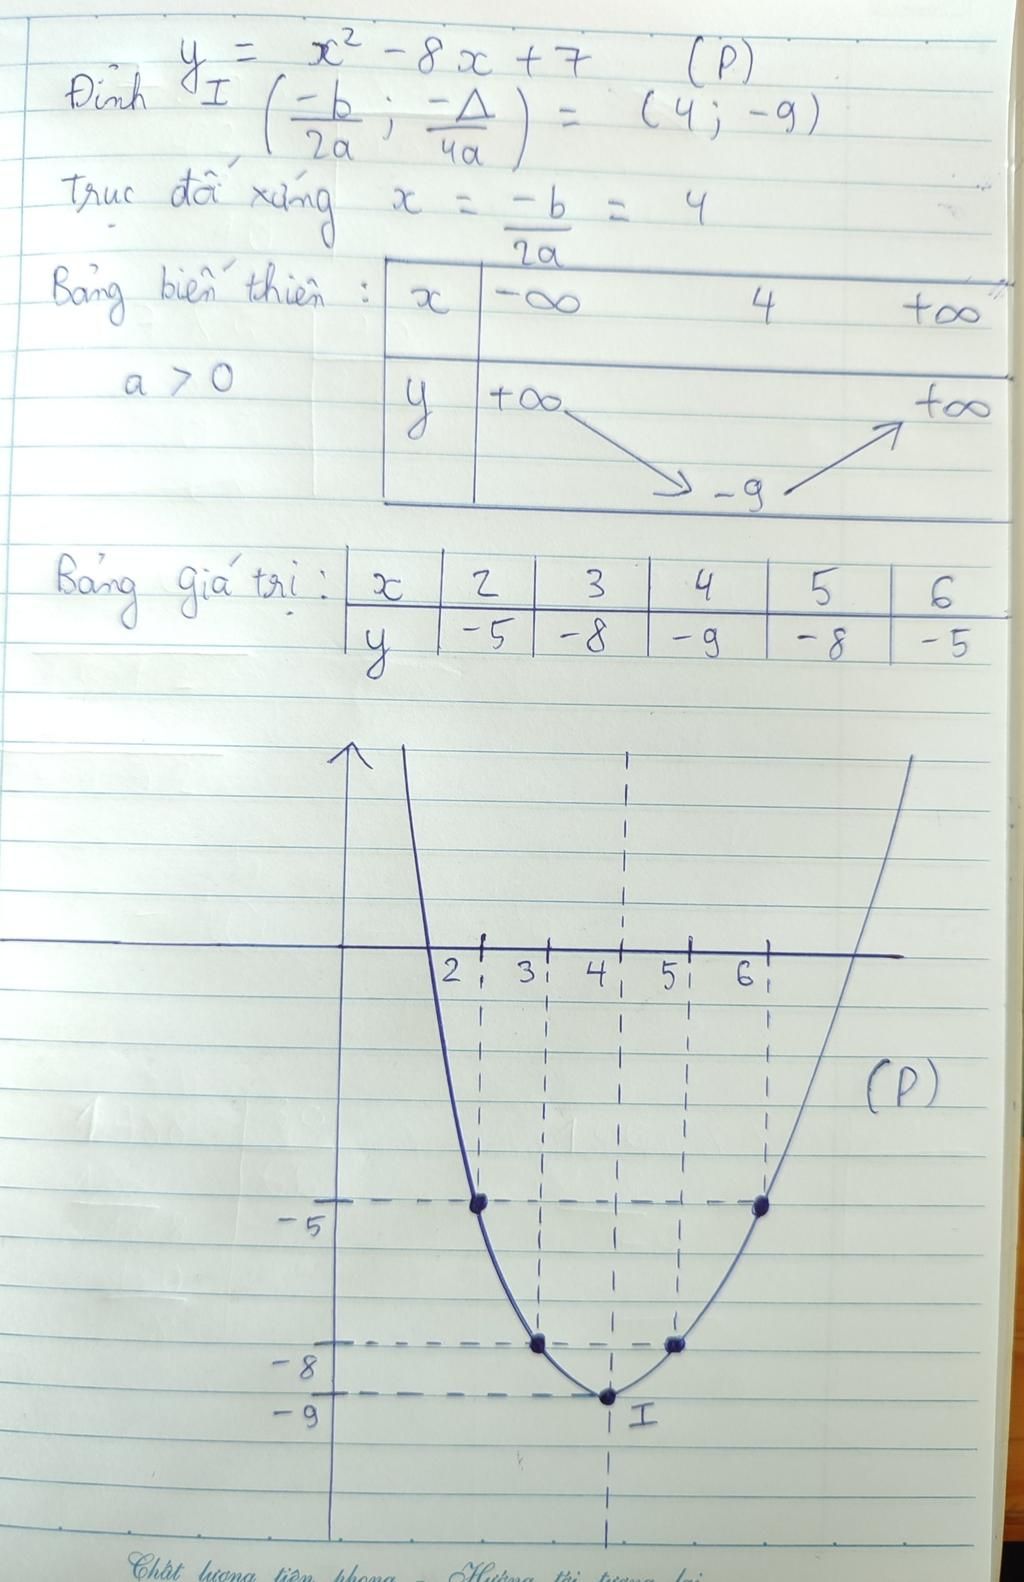 y = x² - 8x + 7 (P)
Đỉnh I (-b/2a ; -Δ/4a) = (4; -9)
Trục đối xứng x = -b/2a = 4
Bảng biến thiên : x -∞ 4 +∞
a > 0 y +∞ -9 +∞
Bảng giá trị : x 2 3 4 5 6
y -5 -8 -9 -8 -5
2 3 4 5 6
(P)
-5
-8
-9 I
Chất lượng tiên phong - Hướng tới tương lai